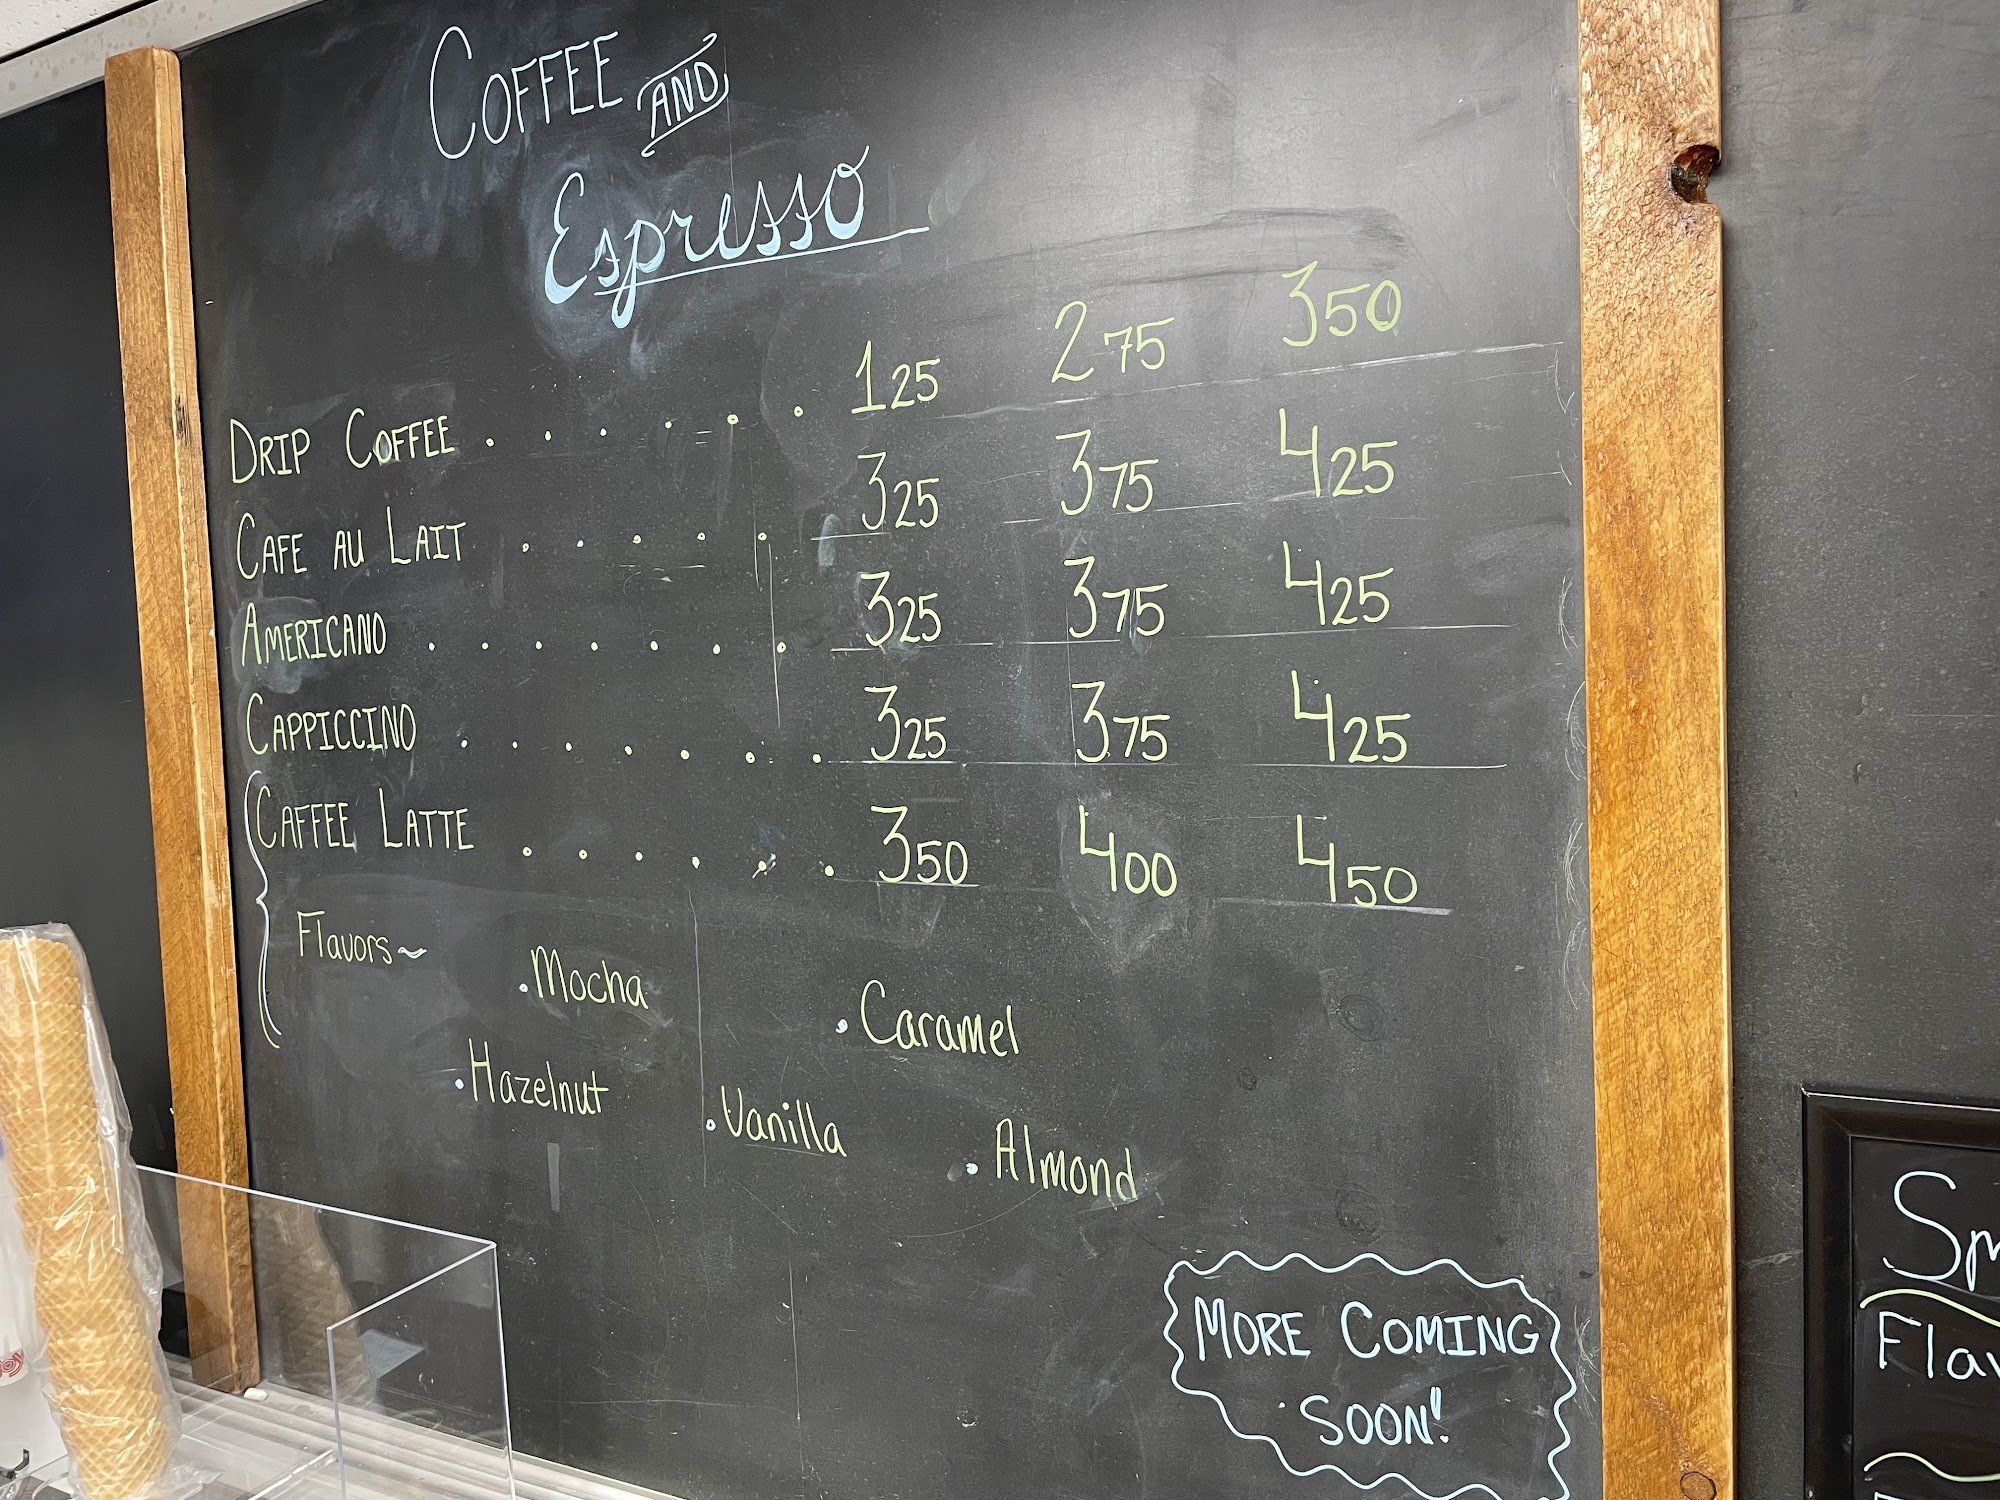 COFFEE AND
Espresso
DRIP COFFEE . . . . . . 125 275 350
CAFE AU LAIT . . . . . 325 375 425
AMERICANO . . . . . . . 325 375 425
CAPPICCINO . . . . . . . 325 375 425
CAFFEE LATTE . . . . . . 350 400 450
Flavors~
. Mocha
. Caramel
. Hazelnut
. Vanilla
. Almond
MORE COMING
SOON!